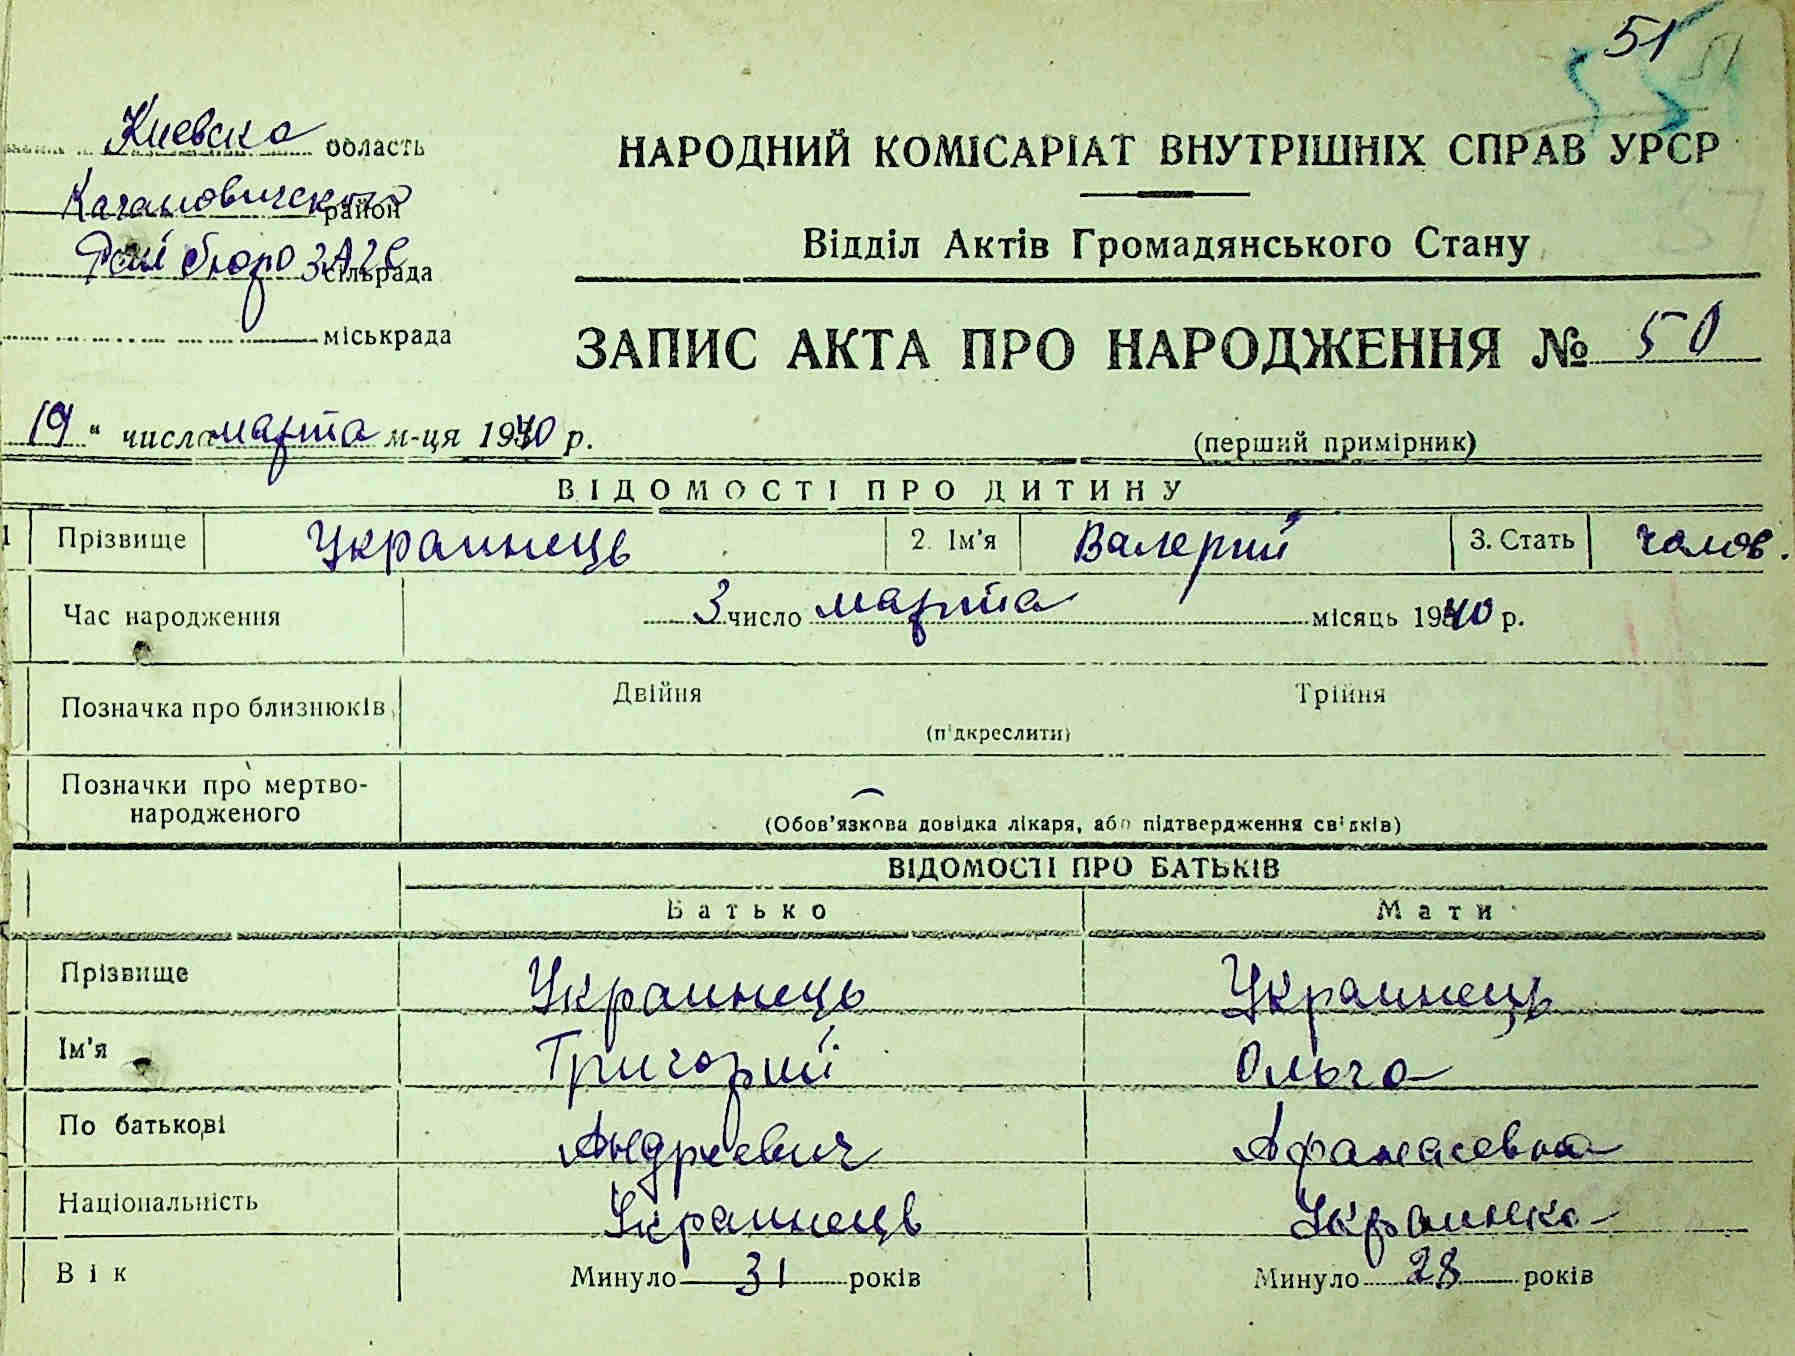 51
Киевска область
Кагановичский район
Рай бюро ЗАГС сільрада
міськрада
НАРОДНИЙ КОМІСАРІАТ ВНУТРІШНІХ СПРАВ УРСР
Відділ Актів Громадянського Стану
ЗАПИС АКТА ПРО НАРОДЖЕННЯ № 50
19 " числа марта м-ця 1940 р.
(перший примірник)
ВІДОМОСТІ ПРО ДИТИНУ
1 Прізвище Украинець 2. Ім'я Валерий 3. Стать чолов.
Час народження 3 число марта місяць 1940 р.
Позначка про близнюків Двійня Трійня
(підкреслити)
Позначки про мертво-
народженого
(Обов'язкова довідка лікаря, або підтвердження свідків)
ВІДОМОСТІ ПРО БАТЬКІВ
Батько Мати
Прізвище Украинець Украинець
Ім'я Григорий Ольга
По батькові Андреевич Афанасевна
Національність Украинець Украинка
Вік Минуло 31 років Минуло 28 років